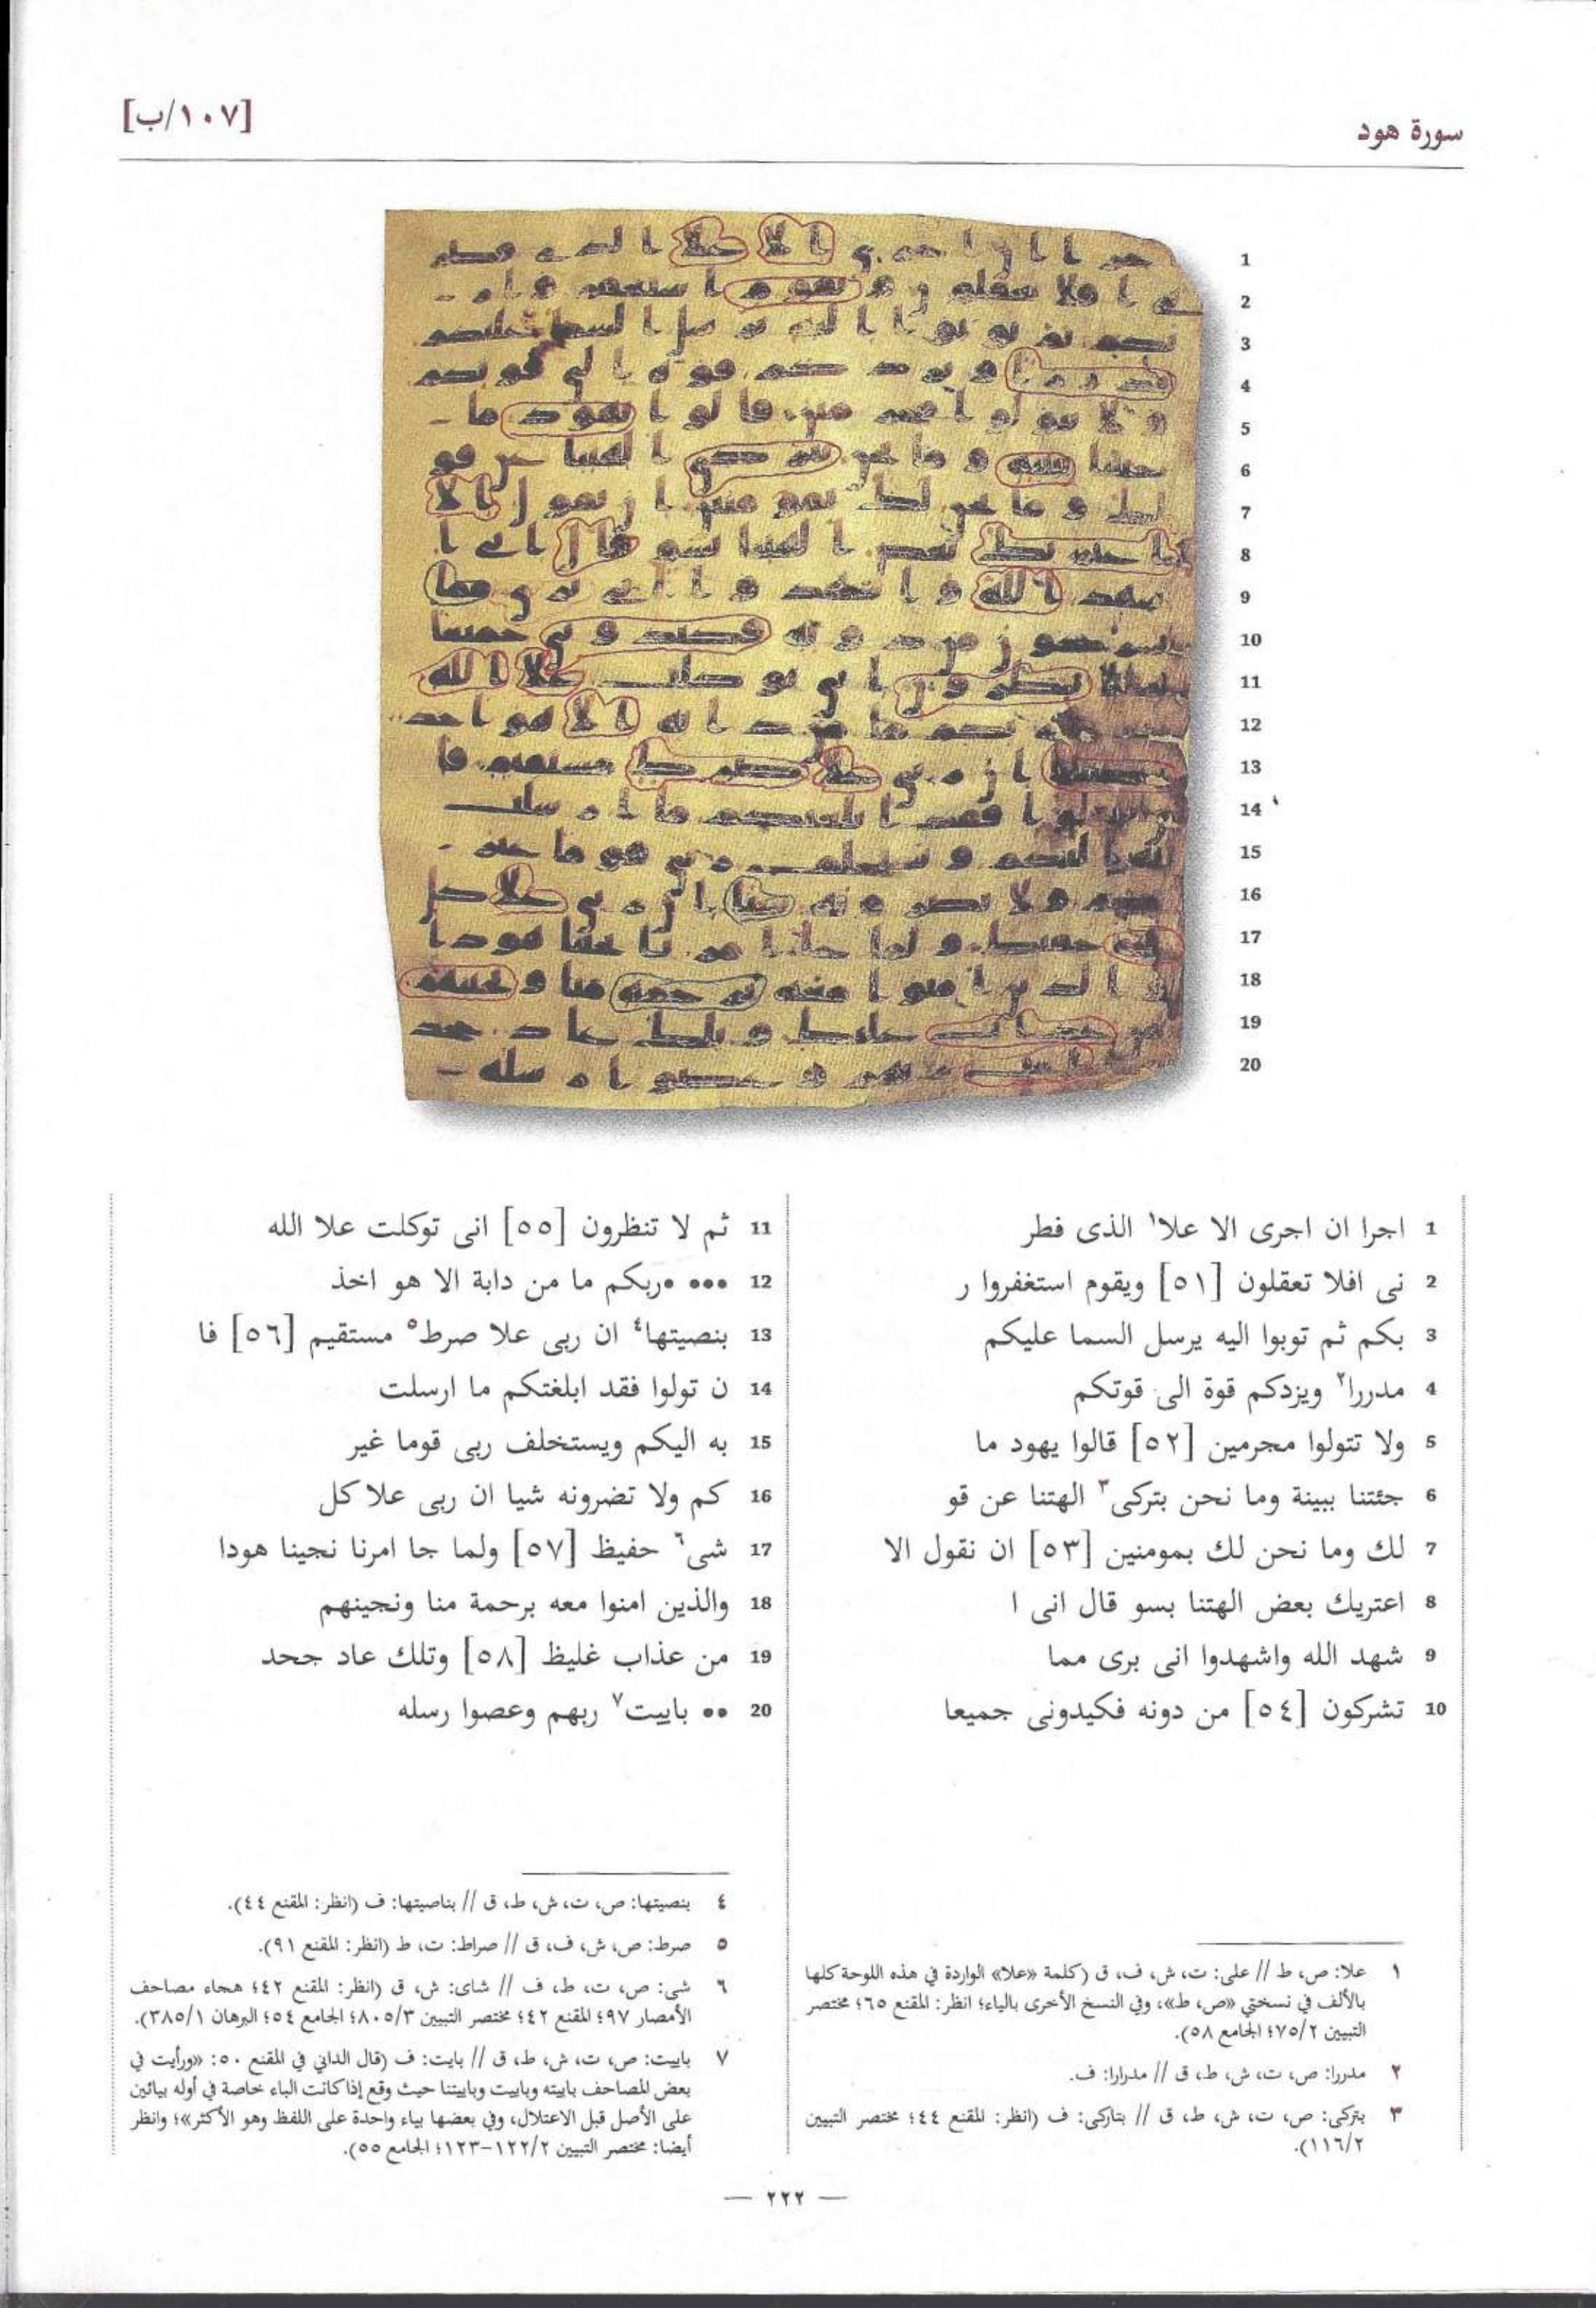 سورة هود
[١٠٧/ب]
1 اجرا ان اجرى الا علا١ الذى فطر
2 نى افلا تعقلون [٥١] ويقوم استغفروا ر
3 بكم ثم توبوا اليه يرسل السما عليكم
4 مدررا٢ ويزدكم قوة الى قوتكم
5 ولا تتولوا مجرمين [٥٢] قالوا يهود ما
6 جئتنا ببينة وما نحن بتركى٣ الهتنا عن قو
7 لك وما نحن لك بمومنين [٥٣] ان نقول الا
8 اعتريك بعض الهتنا بسو قال انى ا
9 شهد الله واشهدوا انى برى مما
10 تشركون [٥٤] من دونه فكيدونى جميعا
11 ثم لا تنظرون [٥٥] انى توكلت علا الله
12 ••• •ربكم ما من دابة الا هو اخذ
13 بنصيتها٤ ان ربى علا صرط٥ مستقيم [٥٦] فا
14 ن تولوا فقد ابلغتكم ما ارسلت
15 به اليكم ويستخلف ربى قوما غير
16 كم ولا تضرونه شيا ان ربى علا كل
17 شى٦ حفيظ [٥٧] ولما جا امرنا نجينا هودا
18 والذين امنوا معه برحمة منا ونجينهم
19 من عذاب غليظ [٥٨] وتلك عاد جحد
20 •• باييت٧ ربهم وعصوا رسله
١ علا: ص، ط // على: ت، ش، ف، ق (كلمة «علا» الواردة في هذه اللوحة كلها
بالألف في نسختي «ص، ط»، وفي النسخ الأخرى بالياء؛ انظر: المقنع ٦٥؛ مختصر
التبيين ٧٥/٢؛ الجامع ٥٨).
٢ مدررا: ص، ت، ش، ط، ق // مدرارا: ف.
٣ بتركى: ص، ت، ش، ط، ق // بتاركى: ف (انظر: المقنع ٤٤؛ مختصر التبيين
١١٦/٢).
٤ بنصيتها: ص، ت، ش، ط، ق // بناصيتها: ف (انظر: المقنع ٤٤).
٥ صرط: ص، ش، ف، ق // صراط: ت، ط (انظر: المقنع ٩١).
٦ شى: ص، ت، ط، ف // شاى: ش، ق (انظر: المقنع ٤٢؛ هجاء مصاحف
الأمصار ٩٧؛ المقنع ٤٢؛ مختصر التبيين ٨٠٥/٣؛ الجامع ٥٤؛ البرهان ٣٨٥/١).
٧ باييت: ص، ت، ش، ط، ق // بايت: ف (قال الداني في المقنع ٥٠: «ورأيت في
بعض المصاحف باييته وباييت وباييتنا حيث وقع إذا كانت الباء خاصة في أوله بيائين
على الأصل قبل الاعتلال، وفي بعضها بياء واحدة على اللفظ وهو الأكثر»؛ وانظر
أيضا: مختصر التبيين ١٢٢/٢-١٢٣؛ الجامع ٥٥).
— ٢٢٢ —